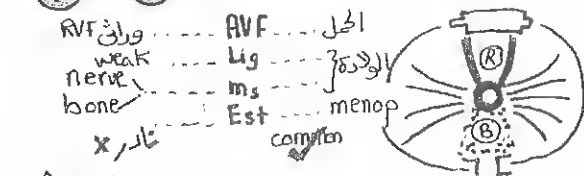 RVF وراثي ..... AVF ..... الحمل
weak ..... Lig ..... الولادة
nerve ..... ms
bone
نادر X ..... Est ..... menop
common ✓
R
B